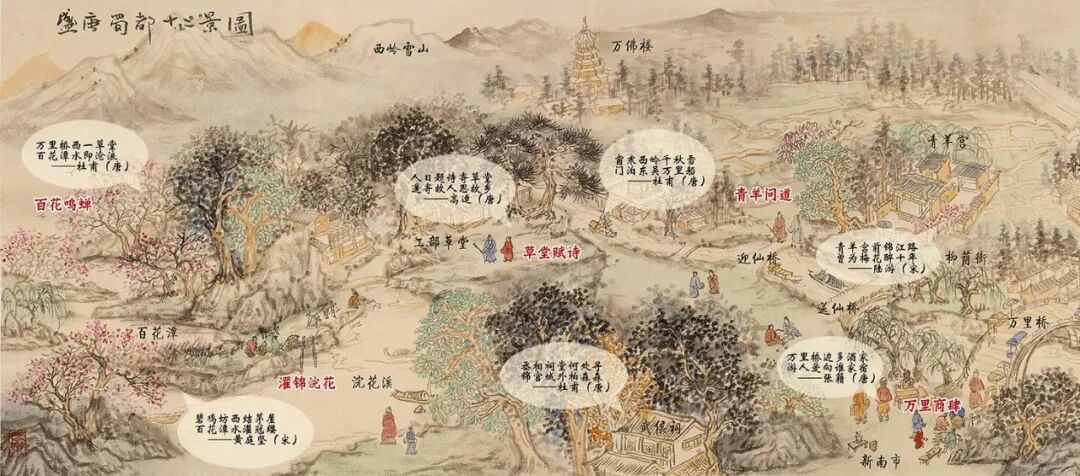 盛唐蜀都十二景圖
西岭雪山
万佛楼
青羊宫
万里桥西一草堂
百花潭水即沧浪
——杜甫（唐）
百花鸣蝉
人日题诗寄草堂
遥寄故人思故乡
——高适（唐）
窗含西岭千秋雪
门泊东吴万里船
——杜甫（唐）
青羊问道
工部草堂
草堂赋诗
迎仙桥
青羊宫前锦江路
曾为梅花醉十年
——陆游（宋）
柳荫街
送仙桥
万里桥
百花潭
濯锦浣花
浣花溪
丞相祠堂何处寻
锦官城外柏森森
——杜甫（唐）
万里桥边多酒家
游人爱向谁家宿
——张籍（唐）
万里商肆
碧鸡坊西结茅屋
百花潭水濯冠缨
——黄庭坚（宋）
武侯祠
新南市